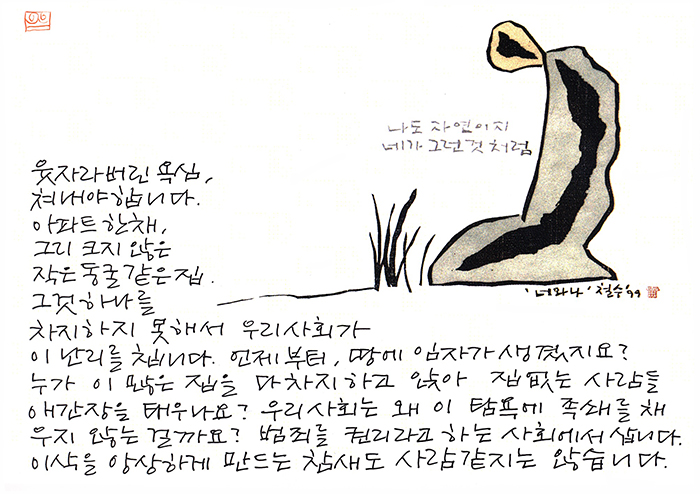 나도 자연이지
네가 그런것 처럼
웃자라버린 욕심,
쳐내야합니다.
아파트 한채,
그리 크지 않은
작은 동굴 같은 집.
그것 하나를
'너와나' 철수 '99
차지하지 못해서 우리사회가
이 난리를 칩니다. 언제부터, 땅에 임자가 생겼지요?
누가 이 많은 집을 다 차지하고 앉아 집없는 사람들
애간장을 태우나요? 우리사회는 왜 이 탐욕에 족쇄를 채
우지 않는 걸까요? 범죄를 권리라고 하는 사회에서 삽니다.
이삭을 앙상하게 만드는 참새도 사람같지는 않습니다.